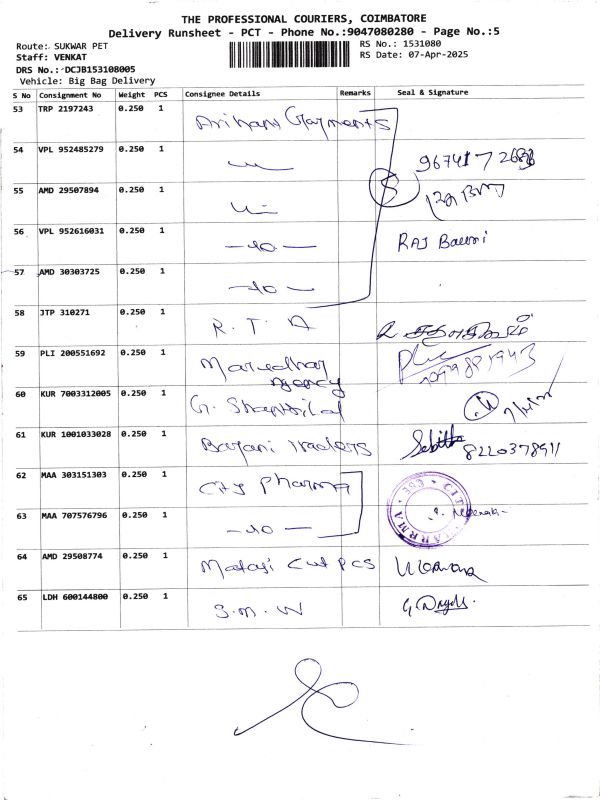 THE PROFESSIONAL COURIERS, COIMBATORE
Delivery Runsheet - PCT - Phone No.:9047080280 - Page No.:5
Route: SUKWAR PET
RS No.: 1531080
Staff: VENKAT
RS Date: 07-Apr-2025
DRS No.: DCJB153108005
Vehicle: Big Bag Delivery
S No Consignment No Weight PCS Consignee Details Remarks Seal & Signature
53 TRP 2197243 0.250 1 Arihant Garments
54 VPL 952485279 0.250 1
55 AMD 29507894 0.250 1
56 VPL 952616031 0.250 1 -do- RAJ
57 AMD 30303725 0.250 1 -do-
58 JTP 310271 0.250 1 R.T.A
59 PLI 200551692 0.250 1 Marudhar Agency
60 KUR 7003312005 0.250 1 G. Shanthilal
61 KUR 1001033028 0.250 1 Barani traders 8220378911
62 MAA 303151303 0.250 1 City Pharma
63 MAA 707576796 0.250 1 -do-
64 AMD 29508774 0.250 1 Mataji Cut pcs
65 LDH 600144800 0.250 1 S.M.W